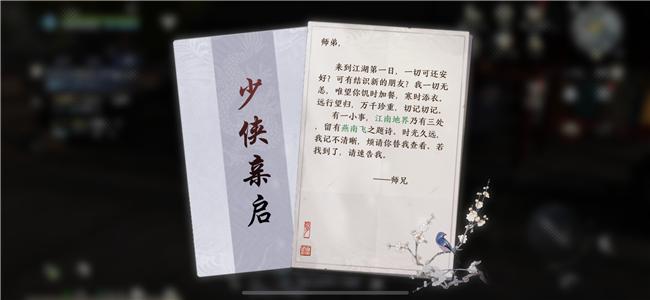 少侠亲启
师弟，
来到江湖第一日，一切可还安
好？可有结识新的朋友？我一切无
恙，唯望你饥时加餐，寒时添衣，
远行望归，万千珍重，切记切记。
有一小事，江南地界乃有三处
，留有燕南飞之题诗，时光久远，
我记不清晰，烦请你替我查看，若
找到了，请速告我。
——师兄